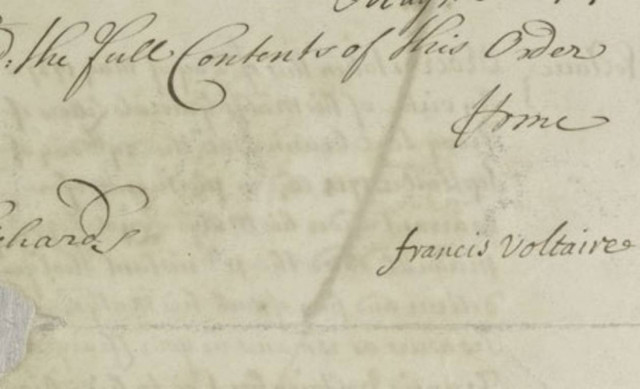 the full Contents of this Order
Hrme
chards
francis Voltaire